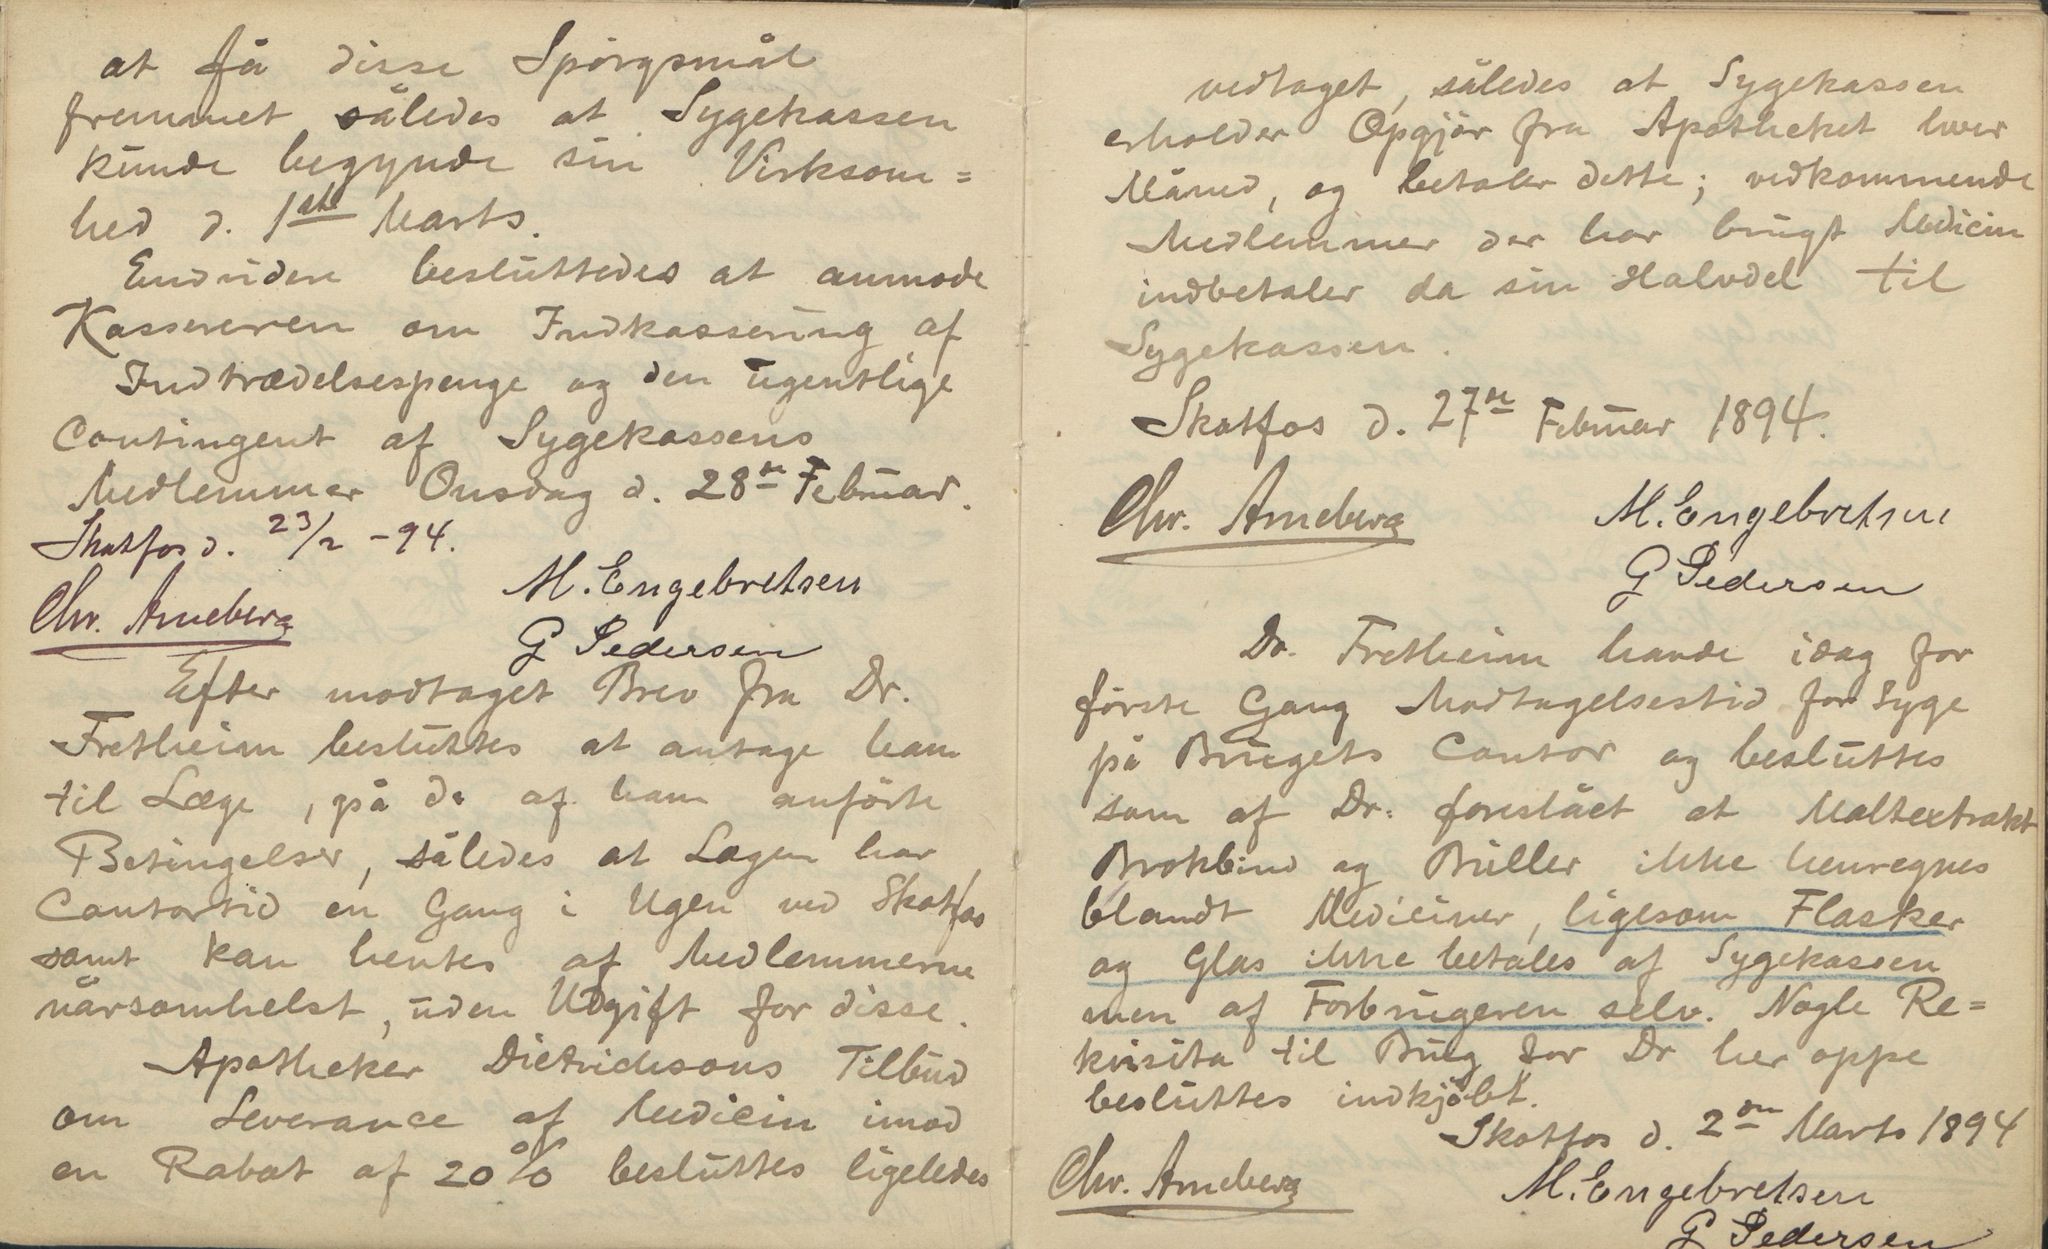 at få disse Spörgsmål
fremmet således at Sygekassen
kunde begynde sin Virksom=
hed d. 1ste Marts.
Endvidere besluttedes at anmode
Kassereren om Indkassering af
Indtrædelsespenge og den ugentlige
Contingent af Sygekassens
Medlemmer Onsdag d. 28de Februar.
Skotfos d. 23/2 - 94.
Chr. Arneberg
M. Engebretsen
G Pedersen
Efter modtaget Brev fra Dr.
Fretheim besluttes at antage ham
til Læge, på de af ham anförte
Betingelser, således at Lægen har
Contortid en Gang i Ugen ved Skotfos
samt kan hentes af Medlemmerne
nårsomhelst, uden Udgift for disse.
Apotheker Dietrichsons Tilbud
om Leverance af Medicin imod
en Rabat af 20% besluttes ligeledes
vedtaget, således at Sygekassen
erholder Opgjör fra Apotheket hver
Måned, og betaler dette; vedkommende
Medlemmer der har brugt Medicin
indbetaler da sin Halvdel til
Sygekassen.
Skotfos d. 27de Februar 1894.
Chr. Arneberg
M. Engebretsen
G Pedersen
Dr. Fretheim havde idag for
förste Gang Modtagelsestid for Syge
på Brugets Contor og besluttes
som af Dr. foreslået at Maltextrakt
Brokbind og Briller ikke henregnes
blandt Mediciner, ligesom Flasker
og Glas ikke betales af Sygekassen
men af Forbrugeren selv. Nogle Re=
kvisita til Brug for Dr her oppe
besluttes indkjöbt.
Skotfos d. 2den Marts 1894
Chr. Arneberg
M. Engebretsen
G Pedersen